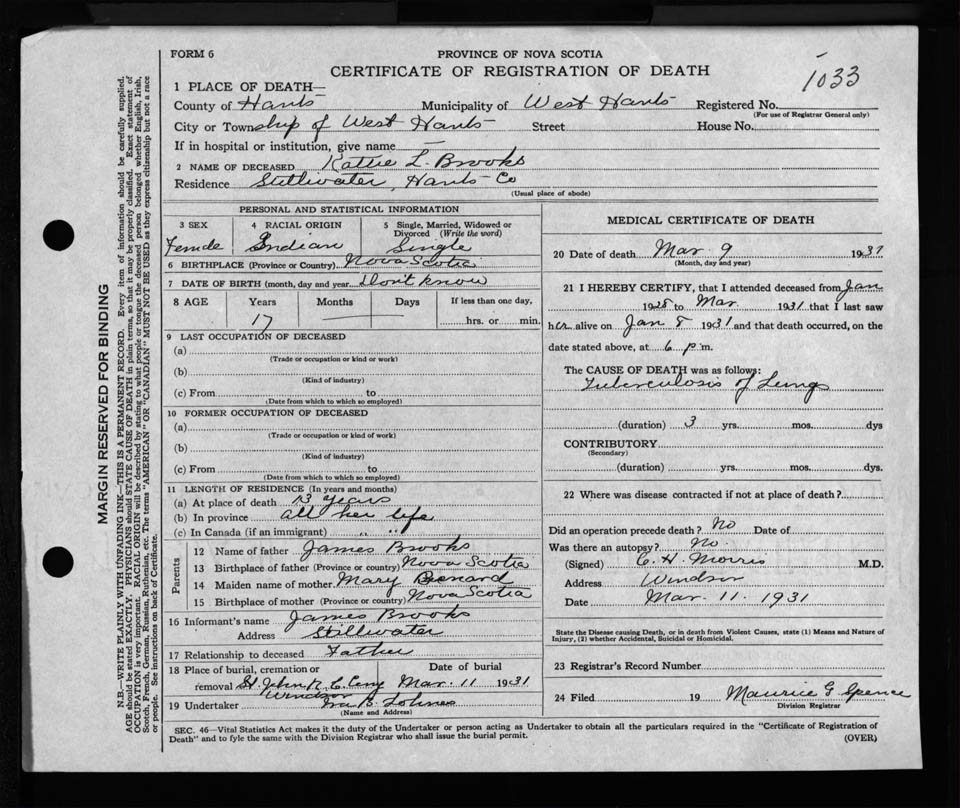 FORM 6
PROVINCE OF NOVA SCOTIA
CERTIFICATE OF REGISTRATION OF DEATH
1033
1 PLACE OF DEATH—
County of Hants Municipality of West Hants Registered No.
(For use of Registrar General only)
City or Township of West Hants Street House No.
If in hospital or institution, give name —
2 NAME OF DECEASED Kattie L. Brooks
Residence Stillwater, Hants Co
(Usual place of abode)
PERSONAL AND STATISTICAL INFORMATION
3 SEX 4 RACIAL ORIGIN 5 Single, Married, Widowed or Divorced (Write the word)
Female Indian Single
6 BIRTHPLACE (Province or Country) Nova Scotia
7 DATE OF BIRTH (month, day and year) Don't know
8 AGE Years Months Days If less than one day,
17 hrs. or min.
9 LAST OCCUPATION OF DECEASED
(a)
(Trade or occupation or kind or work)
(b)
(Kind of industry)
(c) From to
(Date from which to which so employed)
10 FORMER OCCUPATION OF DECEASED
(a)
(Trade or occupation or kind of work)
(b)
(Kind of industry)
(c) From to
(Date from which to which so employed)
11 LENGTH OF RESIDENCE (In years and months)
(a) At place of death 13 years
(b) In province all her life
(c) In Canada (if an immigrant) " "
Parents
12 Name of father James Brooks
13 Birthplace of father (Province or country) Nova Scotia
14 Maiden name of mother Mary Benard
15 Birthplace of mother (Province or country) Nova Scotia
16 Informant's name James Brooks
Address Stillwater
17 Relationship to deceased Father
18 Place of burial, cremation or Date of burial
removal St. John R. C. Cemy Mar. 11 1931
Windsor
19 Undertaker Ira B.
(Name and Address)
MEDICAL CERTIFICATE OF DEATH
20 Date of death Mar 9 1931
(Month, day and year)
21 I HEREBY CERTIFY, that I attended deceased from Jan.
1928 to Mar. 1931 that I last saw
her alive on Jan 8 1931 and that death occurred, on the
date stated above, at 6 p.m.
The CAUSE OF DEATH was as follows:
Tuberculosis of Lungs
(duration) 3 yrs. mos. dys
CONTRIBUTORY
(Secondary)
(duration) yrs. mos. dys.
22 Where was disease contracted if not at place of death?
Did an operation precede death? No Date of
Was there an autopsy? No.
(Signed) C. H. Morris M.D.
Address Windsor
Date Mar. 11. 1931
State the Disease causing Death, or in death from Violent Causes, state (1) Means and Nature of
Injury, (2) whether Accidental, Suicidal or Homicidal.
23 Registrar's Record Number
24 Filed 19 Maurice G Spence
Division Registrar
SEC. 46—Vital Statistics Act makes it the duty of the Undertaker or person acting as Undertaker to obtain all the particulars required in the "Certificate of Registration of
Death" and to fyle the same with the Division Registrar who shall issue the burial permit.
(OVER)
MARGIN RESERVED FOR BINDING
N.B.—WRITE PLAINLY WITH UNFADING INK—THIS IS A PERMANENT RECORD. Every item of information should be carefully supplied.
AGE should be stated EXACTLY. PHYSICIANS should STATE CAUSE OF DEATH in plain terms, so that it may be properly classified. Exact statement of
OCCUPATION is very important. RACIAL ORIGIN will be described by stating to what people or tongue the deceased person belonged whether English, Irish,
Scotch, French, German, Russian, Ruthenian, etc. The terms "AMERICAN" OR "CANADIAN" MUST NOT BE USED as they express citizenship but not a race
or people. See instructions on back of Certificate.